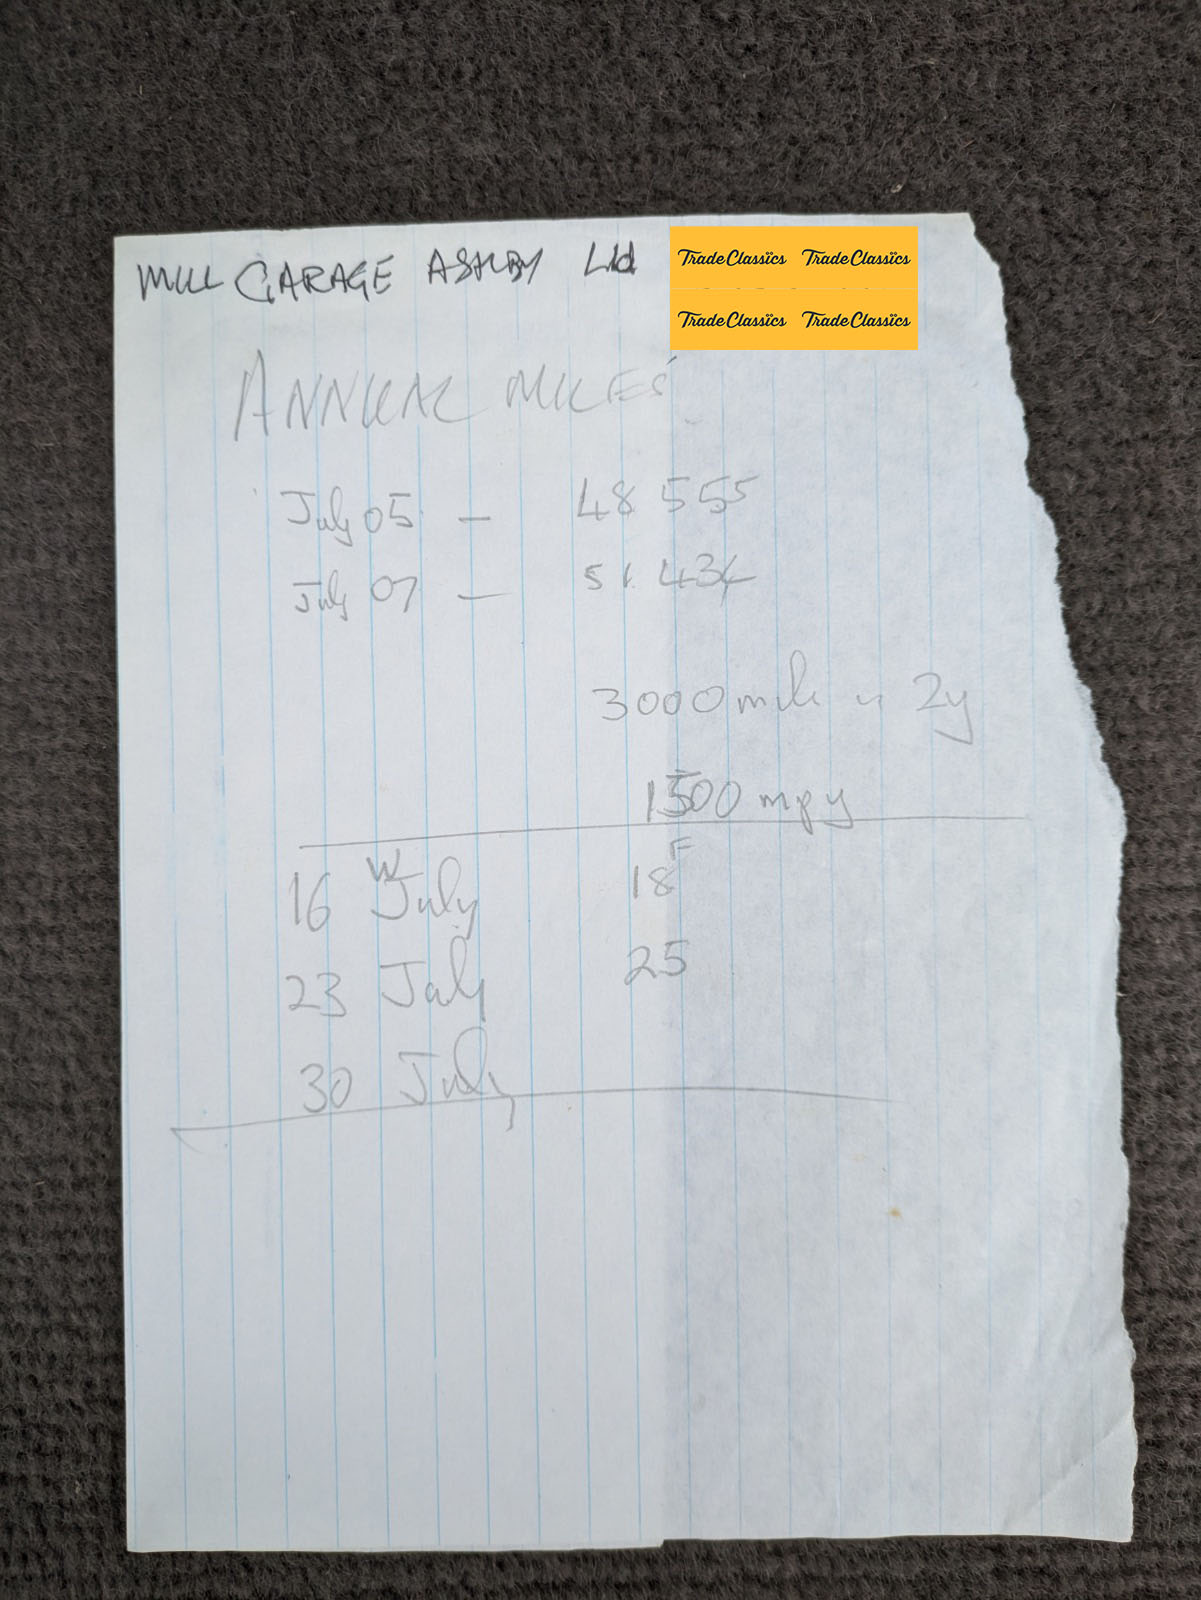 MILL GARAGE ASHBY Ltd
TradeClassics TradeClassics
TradeClassics TradeClassics
ANNUAL MILES
July 05 — 48 555
July 07 — 51.434
3000 mile in 2y
1500 mpy
16 W July 18 F
23 July 25
30 July